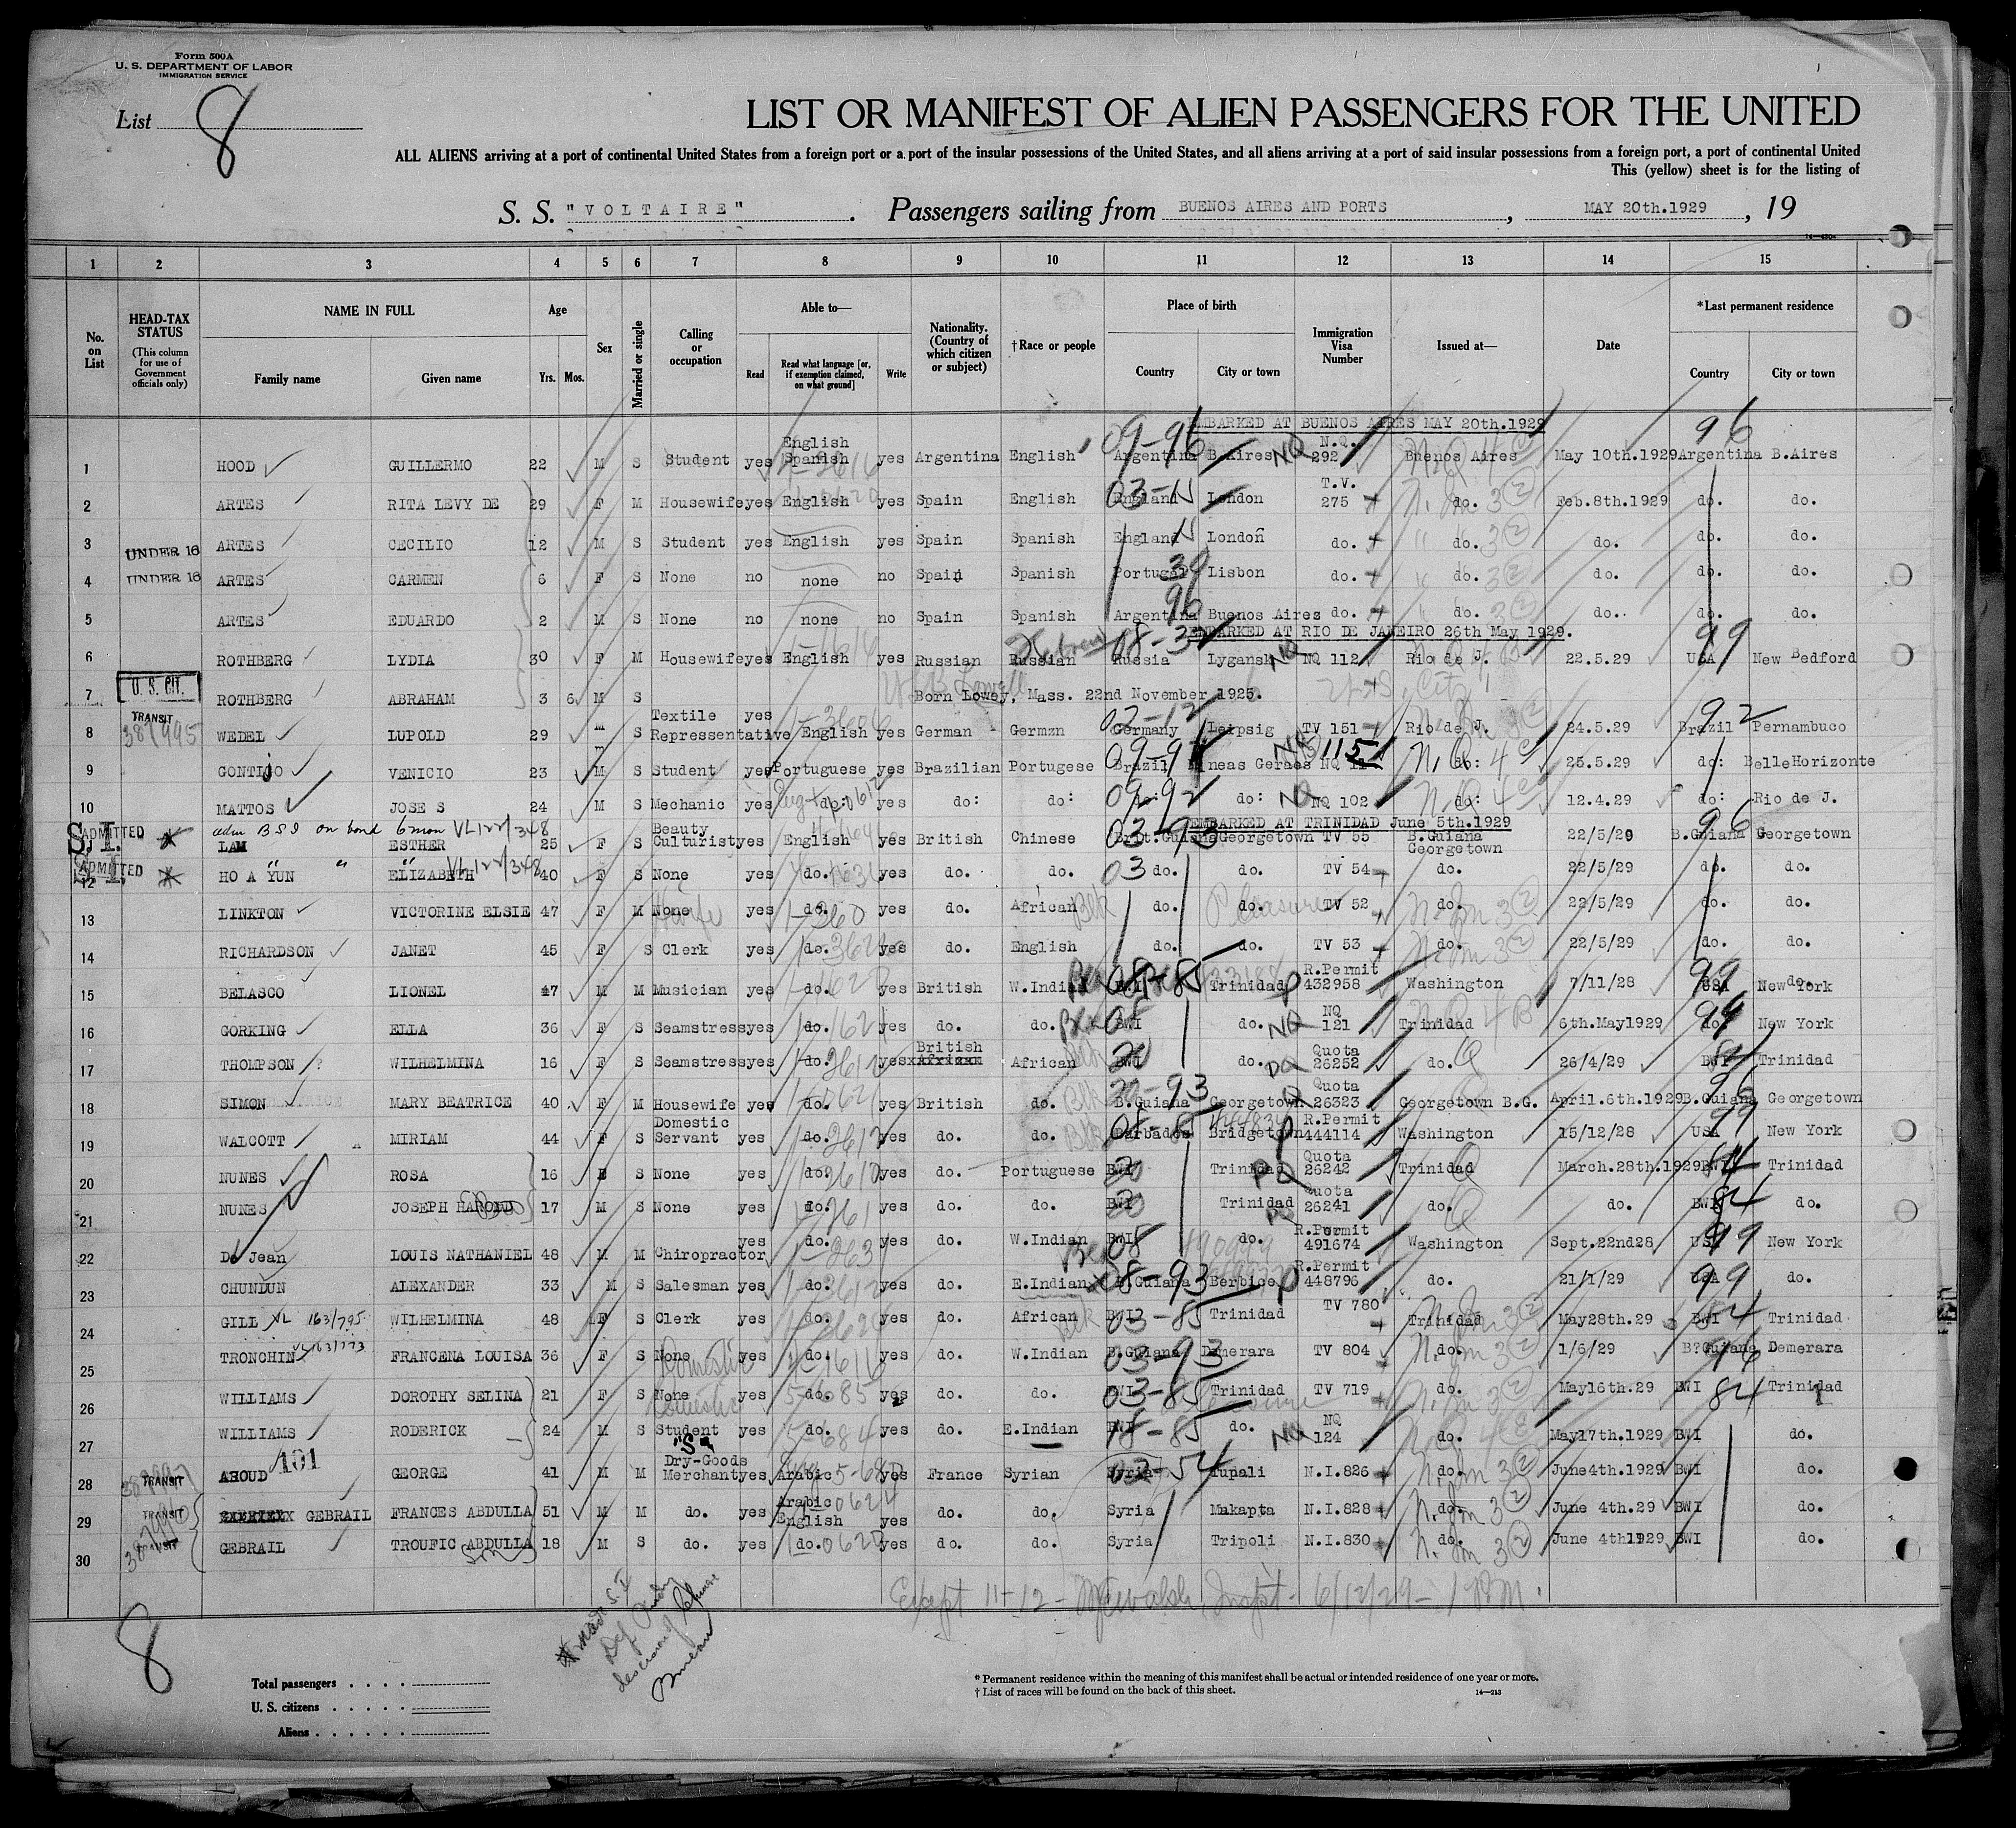 Form 500A
U. S. DEPARTMENT OF LABOR
IMMIGRATION SERVICE
List 8
LIST OR MANIFEST OF ALIEN PASSENGERS FOR THE UNITED
ALL ALIENS arriving at a port of continental United States from a foreign port or a port of the insular possessions of the United States, and all aliens arriving at a port of said insular possessions from a foreign port, a port of continental United
This (yellow) sheet is for the listing of
S. S. "VOLTAIRE". Passengers sailing from BUENOS AIRES AND PORTS, MAY 20th.1929, 19
1 2 3 4 5 6 7 8 9 10 11 12 13 14 15
No. on List
HEAD-TAX STATUS
(This column for use of Government officials only)
NAME IN FULL
Family name Given name
Age
Yrs. Mos.
Sex
Married or single
Calling or occupation
Able to—
Read Read what language [or, if exemption claimed, on what ground] Write
Nationality. (Country of which citizen or subject)
†Race or people
Place of birth
Country City or town
Immigration Visa Number
Issued at—
Date
*Last permanent residence
Country City or town
EMBARKED AT BUENOS AIRES MAY 20th.1929
1 HOOD GUILLERMO 22 M S Student yes English Spanish yes Argentina English 09-96 Argentina B.Aires NQ N.Q. 292 Buenos Aires May 10th.1929 96 Argentina B.Aires
2 ARTES RITA LEVY DE 29 F M Housewife yes English yes Spain English England London T.V. 275 do. Feb.8th.1929 do. do.
3 UNDER 16 ARTES CECILIO 12 M S Student yes English yes Spain Spanish England London do. do. do. do. do.
4 UNDER 16 ARTES CARMEN 6 F S None no none no Spain Spanish Portugal Lisbon do. do. do. do. do.
5 ARTES EDUARDO 2 M S None no none no Spain Spanish Argentina Buenos Aires do. do. do. do. do.
EMBARKED AT RIO DE JANEIRO 26th May 1929.
6 ROTHBERG LYDIA 30 F M Housewife yes English yes Russian Russian Hebrew Russia Lygansk NQ 112 Rio de J. 22.5.29 99 USA New Bedford
7 U. S. CIT. ROTHBERG ABRAHAM 3 6 M S Born Lowey, Mass. 22nd November 1925.
8 TRANSIT WEDEL LUPOLD 29 M S Textile Representative yes English yes German Germzn 02-12 Germany Leipsig TV 151 Rio de J. 24.5.29 92 Brazil Pernambuco
9 GONTIJO VENICIO 23 M S Student yes Portuguese yes Brazilian Portugese Brazil Mineas Geraes NQ 115 do: 25.5.29 do: BelleHorizonte
10 MATTOS JOSE S 24 M S Mechanic yes do: yes do: do: 09-92 do: do: NQ 102 do: 12.4.29 do: Rio de J.
EMBARKED AT TRINIDAD June 5th.1929
S.I. ADMITTED adm BSI on bond 6 mon VL122/348
LAM ESTHER 25 F S Beauty Culturist yes English yes British Chinese 03-93 Brit.Guiana Georgetown TV 55 B.Guiana Georgetown 22/5/29 96 B.Guiana Georgetown
12 S.I. ADMITTED HO A YUN ELIZABETH VL122/348 40 F S None yes do. yes do. do. 03 do. do. TV 54 do. 22/5/29 do. do.
13 LINKTON VICTORINE ELSIE 47 F M None yes do. yes do. African do. do. Pleasure TV 52 do. 22/5/29 do. do.
14 RICHARDSON JANET 45 F S Clerk yes do. yes do. English do. do. TV 53 do. 22/5/29 do. do.
15 BELASCO LIONEL 47 M M Musician yes do. yes British W.Indian 08-85 BWI Trinidad R.Permit 432958 Washington 7/11/28 99 USA New York
16 GORKING ELLA 36 F S Seamstress yes do. yes do. do. Blk BWI do. NQ NQ 121 Trinidad 6th.May1929 99 do. New York
17 THOMPSON ? WILHELMINA 16 F S Seamstress yes do. yes British African BWI do. Quota 26252 do. 26/4/29 84 BWI Trinidad
18 SIMON MARY BEATRICE 40 F M Housewife yes do. yes British do. Blk B.Guiana Georgetown Quota 26323 Georgetown B.G. April.6th.1929 96 B.Guiana Georgetown
19 WALCOTT MIRIAM 44 F S Domestic Servant yes do. yes do. do. 08-85 Barbados Bridgetown R.Permit 444114 Washington 15/12/28 99 USA New York
20 NUNES ROSA 16 F S None yes do. yes do. Portuguese BWI Trinidad Quota 26242 Trinidad March.28th.1929 84 BWI Trinidad
21 NUNES JOSEPH HAROLD 17 M S None yes do. yes do. do. BWI Trinidad Quota 26241 do. do. 84 BWI do.
22 De Jean LOUIS NATHANIEL 48 M M Chiropractor yes do. yes do. W.Indian 08 BWI do. R.Permit 491674 Washington Sept.22nd28 99 USA New York
23 CHUNDUN ALEXANDER 33 M S Salesman yes do. yes do. E.Indian 08-93 B.Guiana Berbice R.Permit 448796 do. 21/1/29 99 USA do.
24 GILL VL 163/795 WILHELMINA 48 F S Clerk yes do. yes do. African 03-85 BWI Trinidad TV 780 Trinidad May28th.29 84 BWI Trinidad
25 TRONCHIN VL163/793 FRANCENA LOUISA 36 F S None Domestic yes do. yes do. W.Indian 03-93 B.Guiana Demerara TV 804 do. 1/6/29 96 B.Guiana Demerara
26 WILLIAMS DOROTHY SELINA 21 F S None Domestic yes do. yes do. do. 03-85 BWI Trinidad TV 719 do. May16th.29 84 BWI Trinidad
27 WILLIAMS RODERICK 24 M S Student "S" yes do. yes do. E.Indian 18-85 BWI do. NQ NQ 124 do. May17th.1929 BWI do.
28 TRANSIT AHOUD 101 GEORGE 41 M M Dry-Goods Merchant yes Arabic yes France Syrian Syria Tupali N.I.826 do. June4th.1929 BWI do.
29 TRANSIT GEBRAIL FRANCES ABDULLA 51 M M do. yes Arabic English yes do. do. Syria Makapta N.I.828 do. June 4th.29 BWI do.
30 GEBRAIL TROUFIC ABDULLA Son 18 M S do. yes do. yes do. do. Syria Tripoli N.I.830 do. June 4th1929 BWI do.
Except 11-12 - Inspt - 6/12/29 - 1 PM.
8
Total passengers
U. S. citizens
Aliens
* Permanent residence within the meaning of this manifest shall be actual or intended residence of one year or more.
† List of races will be found on the back of this sheet.
14—213